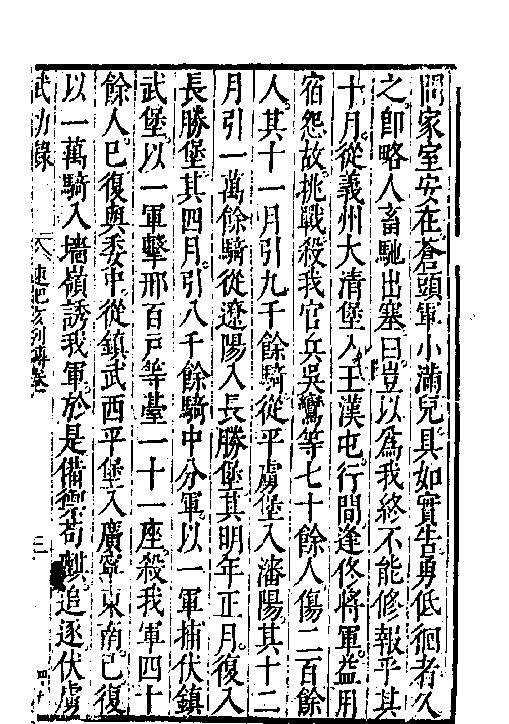 問家室安在蒼頭軍小滿兒具如實告勇低徊者久
之卽略人畜馳出塞曰豈以爲我終不能修報乎其
十月從義州大清堡入王漢屯行間逢佟將軍益用
宿怨故挑戰殺我官兵吳鸞等七十餘人傷二百餘
人其十一月引九千餘騎從平虜堡入瀋陽其十二
月引一萬餘騎從遼陽入長勝堡其明年正月復入
長勝堡其四月引八千餘騎中分軍以一軍捕伏鎮
武堡以一軍擊邢百戸等臺一十一座殺我軍四十
餘人已復與委中從鎮武西平堡入廣寧東南已復
以一萬騎入墻嶺誘我軍於是備禦苟麒追逐伏虜
武功錄 速把亥列傳 三